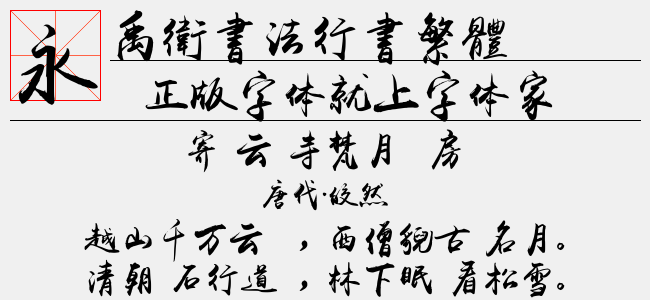 永
禹衛書法行書繁體
正版字体就上字体家
寄 云 寺梵月 房
唐代·皎然
越山千万云 ，西僧貌古 名月。
清朝 石行道 ，林下眠 看松雪。